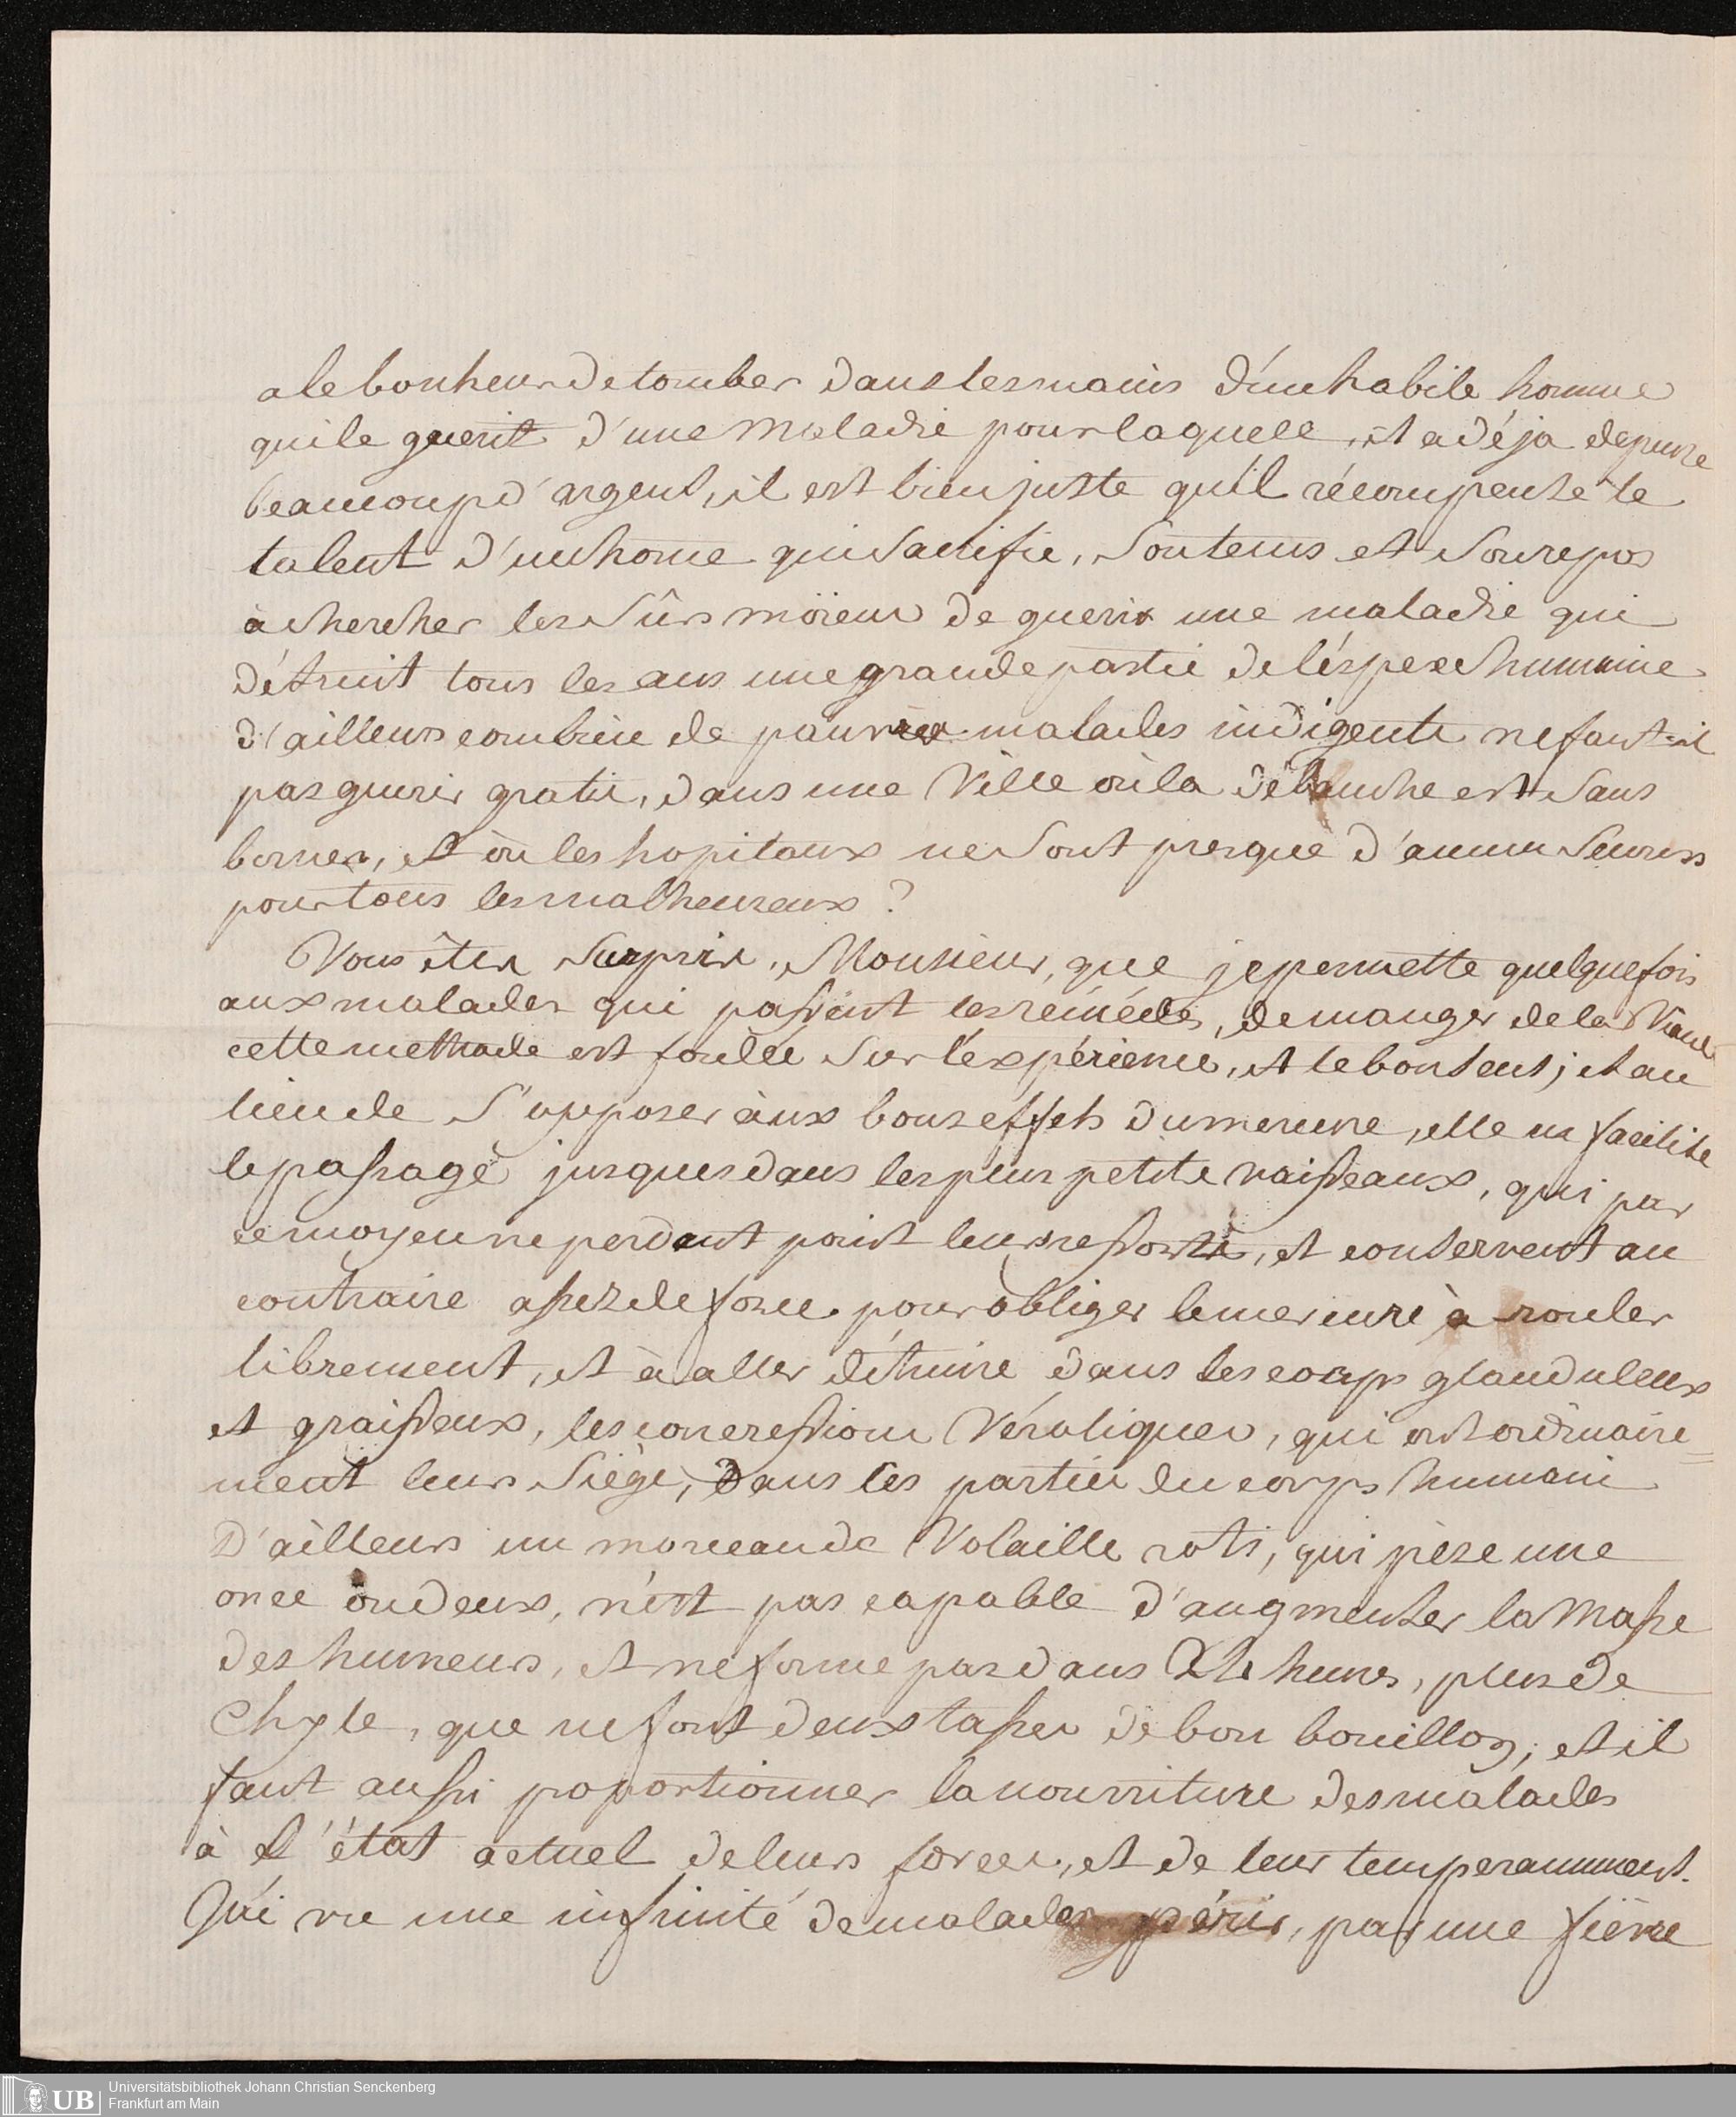 a le bonheur de tomber dans les mains d'un habile homme
qui le guerit d'une maladie pour laquelle, il a déja depensé
beaucoup d'argent, il est bien juste qu'il récompense le
talent d'un home qui sacrifie, son tems et son repos
à chercher les sûrs moïens de guerir une maladie qui
détruit tous les ans une grande partie de l'éspece humaine
d'ailleurs combien de pauvres malades indigents ne faut-il
pas guerir gratis, dans une Ville où la débauche est sans
bornes, et où les hopitaux ne sont presque d'aucun secours
pour tous les malheureux?
Vous êtes surpris, Monsieur, que je permette quelquefois
aux malades qui passent les remédes, de manger de la Viande
cette methode est fondée sur l'expérience, et le bon sens; et au
lieu de s'opposer àux bons effets du mercure, elle en facilite
le passage jusques dans les plus petits vaisseaux, qui par
ce moyen ne perdent point leurs ressorts, et conservent au
contraire assez de force pour obliger le mercure à rouler
librement, et à aller détruire dans les corps glanduleux
et graisseux, les concressions Véroliques, qui ont ordinaire=
ment leurs siège, dans les parties du corps humain
D'ailleurs un morceau de Volaille roti, qui pèse une
once ou deux, n'est pas capable d'augmenter la masse
des humeurs, et ne forme pas dans 24 heures, plus de
Chyle, que ne font deux tasses de bon bouillon; et il
faut aussi poportionner la nourriture des malades
à l'état actuel de leurs forces, et de leur temperamment.
J'ai vu une infinité de malades périr, par une fièvre
Universitätsbibliothek Johann Christian Senckenberg
Frankfurt am Main
UB